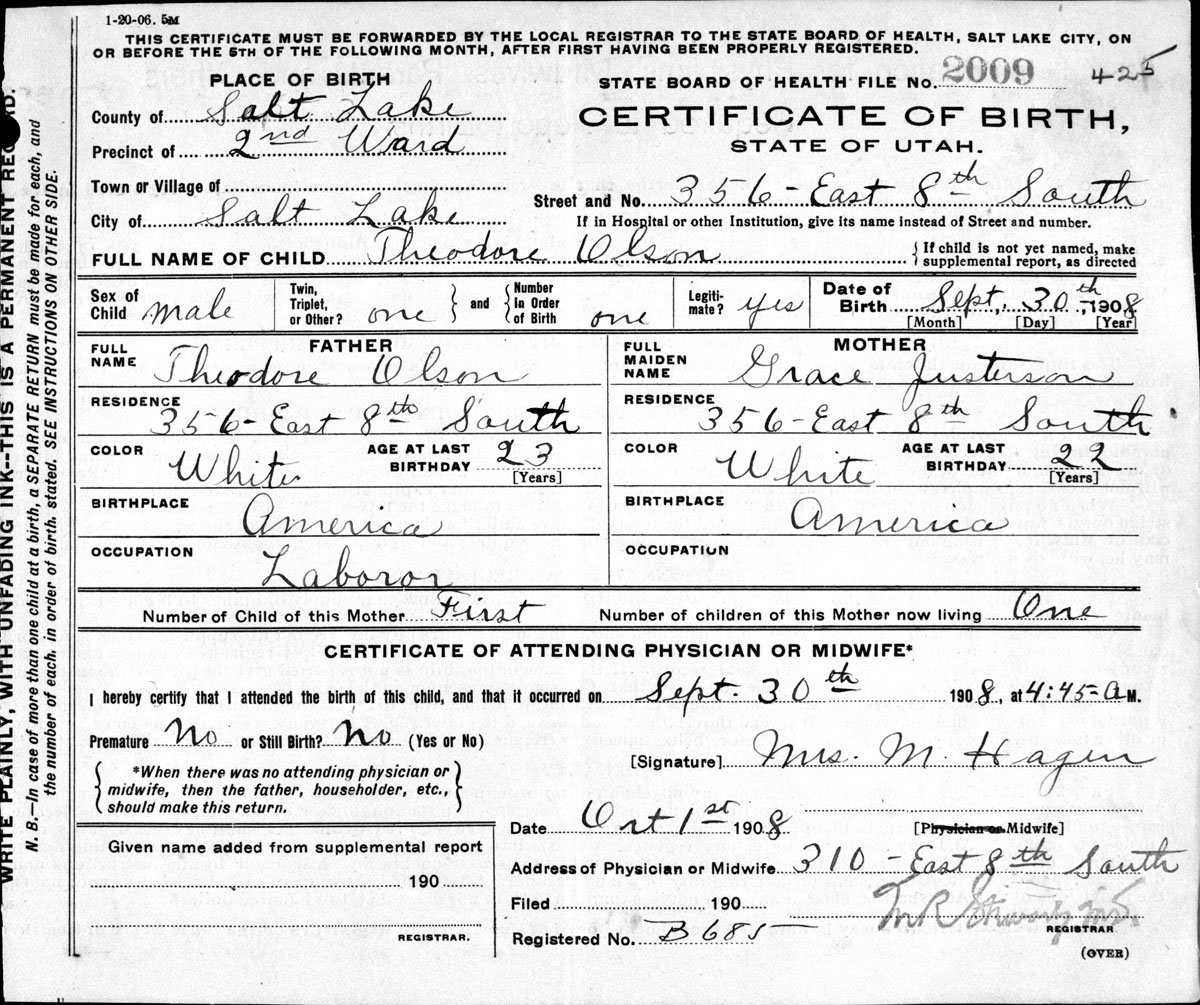 1-20-06. 5M
THIS CERTIFICATE MUST BE FORWARDED BY THE LOCAL REGISTRAR TO THE STATE BOARD OF HEALTH, SALT LAKE CITY, ON
OR BEFORE THE 5TH OF THE FOLLOWING MONTH, AFTER FIRST HAVING BEEN PROPERLY REGISTERED.
PLACE OF BIRTH
STATE BOARD OF HEALTH FILE NO. 2009 425
County of Salt Lake
CERTIFICATE OF BIRTH,
Precinct of 2nd Ward
STATE OF UTAH.
Town or Village of
Street and No. 356-East 8th South
City of Salt Lake
If in Hospital or other Institution, give its name instead of Street and number.
FULL NAME OF CHILD Theodore Olson
{If child is not yet named, make
supplemental report, as directed
Sex of Child male
Twin, Triplet, or Other? one } and { Number in Order of Birth one
Legitimate? yes
Date of Birth Sept, 30th, 1908
[Month] [Day] [Year]
FATHER
FULL NAME Theodore Olson
RESIDENCE 356-East 8th South
COLOR White AGE AT LAST BIRTHDAY 23
[Years]
BIRTHPLACE America
OCCUPATION Laboror
MOTHER
FULL MAIDEN NAME Grace Justerson
RESIDENCE 356-East 8th South
COLOR White AGE AT LAST BIRTHDAY 22
[Years]
BIRTHPLACE America
OCCUPATION
Number of Child of this Mother First Number of children of this Mother now living One
CERTIFICATE OF ATTENDING PHYSICIAN OR MIDWIFE*
I hereby certify that I attended the birth of this child, and that it occurred on Sept. 30th 1908, at 4:45-a M.
Premature No or Still Birth? No (Yes or No)
[Signature] Mrs. M. Hagen
{*When there was no attending physician or
midwife, then the father, householder, etc.,
should make this return.}
Date Oct 1st 1908 [Physician or Midwife]
Given name added from supplemental report
190
REGISTRAR.
Address of Physician or Midwife 310-East 8th South
Filed 190
Registered No. B685
M R REGISTRAR.
(OVER)
WRITE PLAINLY, WITH UNFADING INK--THIS IS A PERMANENT
N. B.—In case of more than one child at a birth, a SEPARATE RETURN must be made for each, and
the number of each, in order of birth, stated. SEE INSTRUCTIONS ON OTHER SIDE.